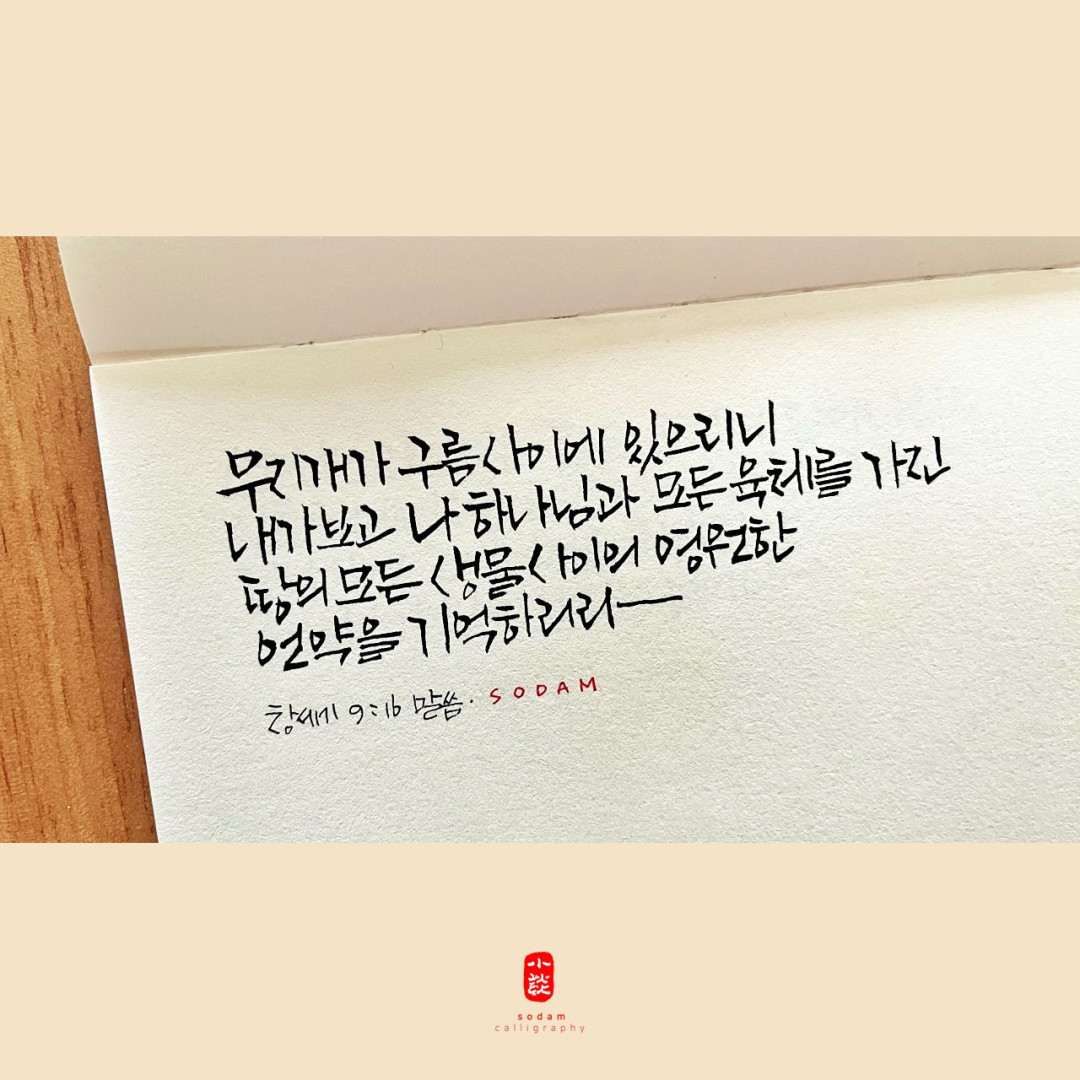 무지개가 구름 사이에 있으리니
내가 보고 나 하나님과 모든 육체를 가진
땅의 모든 생물 사이의 영원한
언약을 기억하리라ㅡ
창세기 9:16 말씀. SODAM
小談
sodam
calligraphy